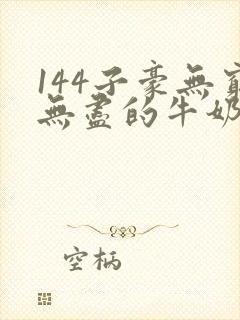 144子豪無窮
無盡的牛奶
空柄